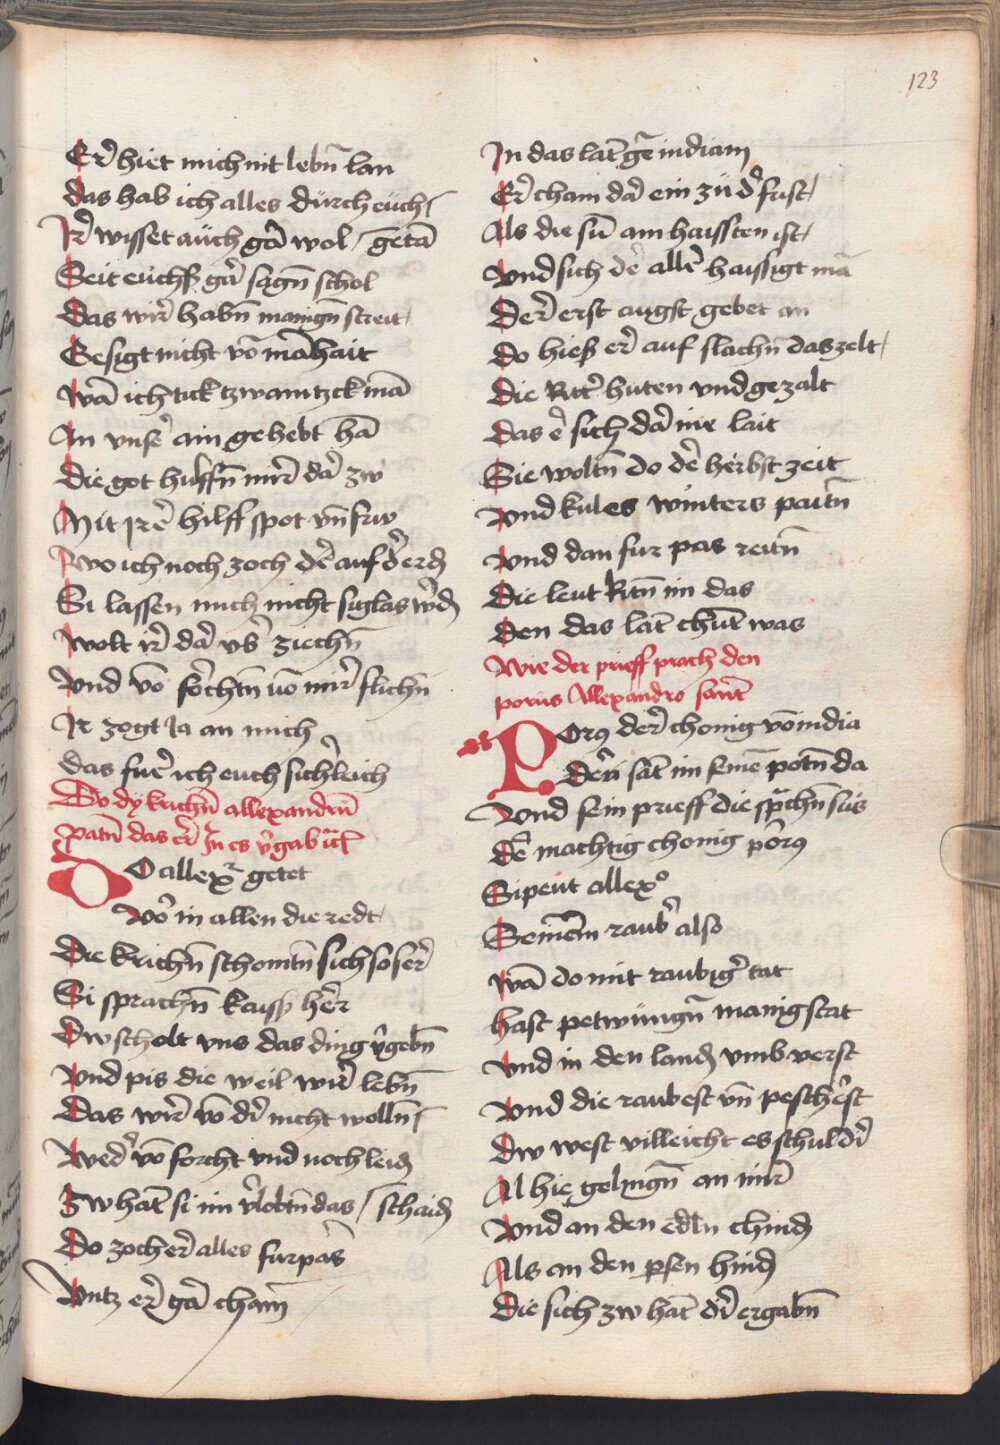 123
Er hiet mich nit lebn̄ lan
das hab ich alles dürch eüch
Ir wisset aüch gar wol / getā
Seit eüchß gar sagn̄ schol
Das wir habn̄ manign̄ streit
Gesigt nicht vō māhait
wā ich tick tzwaintzck mā
An vnser ain gehebt hā
die got hulffn̄ mir dar zw
Mit irer hilff spot vn̄ frw
wo ich noch zoch der auf der erd
Si lassen mich nicht siglas werd
wolt ir dar vber ziechn̄
vnd vō forchtn̄ vō mir flichn̄
Ir zogt ia an mich
das fuer ich euch sicherleich
Do dy krichn̄ allexandrū
patn̄ das er In es vergab
Do allexer getet
vor in allen die redt
Die krichn̄ schomtn̄ sich so ser
Si sprachn̄ kaiser her
Dw scholt vns das ding vergebn̄
vnd pis die weil wir lebn̄
Das wir vō dir nicht wolln̄
weder vō forcht vnd noch leid
Zw hāt si im verlobtn̄ das / schaid
Do zoch er alles furpas
vntz er gar cham
In das lāt gen indiam
Er cham dar ein zü der frist
Als die sun̄ am haissten ist
vnd sich der aller haissigt mā
Der erst augst gebet an
Do hieß er auf slachn̄ das zelt
die Riter huten vnd gezalt
das er sich dar nie lait
Sie woltn̄ do der herbst zeit
vnd kules winters paitn̄
vnd dan fur pas reitn̄
Die leut Ritn̄ im das
den das lāt chūt was
wie der prieff sprach den
porus Allexandro sant
Porus der chonig vō india
Der sāt im seinē potn̄ da
vnd sein prieff die sprachn̄ sus
der machtig chonig porus
Gipeut allexo
Seinem rauber also
wā do mit raubiger tat
hast petwüngn̄ manig stat
vnd in den land vmb verst
vnd die raubest vn̄ pescherst
Dw west villeicht es schul dir
Al hie gelingn̄ an mir
vnd an den edln chind
Als an den persen hind
Die sich zw hāt dir ergabn̄